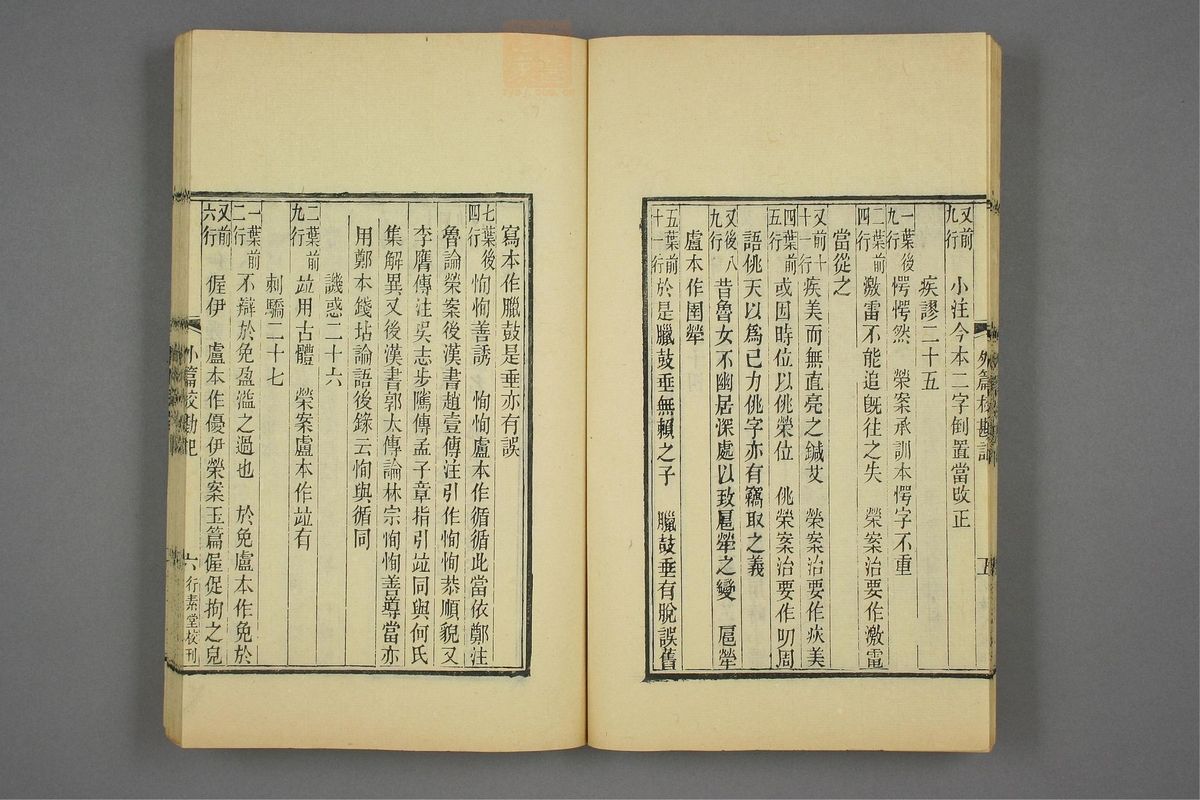 又前九行 小注今本二字倒置當改正
疾謬二十五
一葉後九行 愕愕然 榮案承訓本愕字不重
二葉前四行 激雷不能追旣往之失 榮案治要作激電
當從之
又前十一行 疾美而無直亮之鍼艾 榮案治要作疢美
四葉前五行 或因時位以佻榮位 佻榮案治要作叨周
語佻天以爲己力佻字亦有竊取之義
又後八九行 昔魯女不幽居深處以致扈犖之變 扈犖
盧本作圉犖
五葉前十一行 於是臘鼓垂無賴之子 臘鼓垂有脫誤舊
外篇校勘記 五
寫本作臘鼓是垂亦有誤
七葉後四行 恂恂善誘 恂恂盧本作循循此當依鄭注
魯論榮案後漢書趙壹傳注引作恂恂恭順貌又
李膺傳注吳志步騭傳孟子章指引竝同與何氏
集解異又後漢書郭太傳論林宗恂恂善導當亦
用鄭本錢坫論語後錄云恂與循同
譏惑二十六
二葉前九行 竝用古體 榮案盧本作竝有
刺驕二十七
一葉前二行 不辯於免盈溢之過也 於免盧本作免於
又前六行 偓伊 盧本作優伊榮案玉篇偓促拘之皃
外篇校勘記 六 行素堂校刊